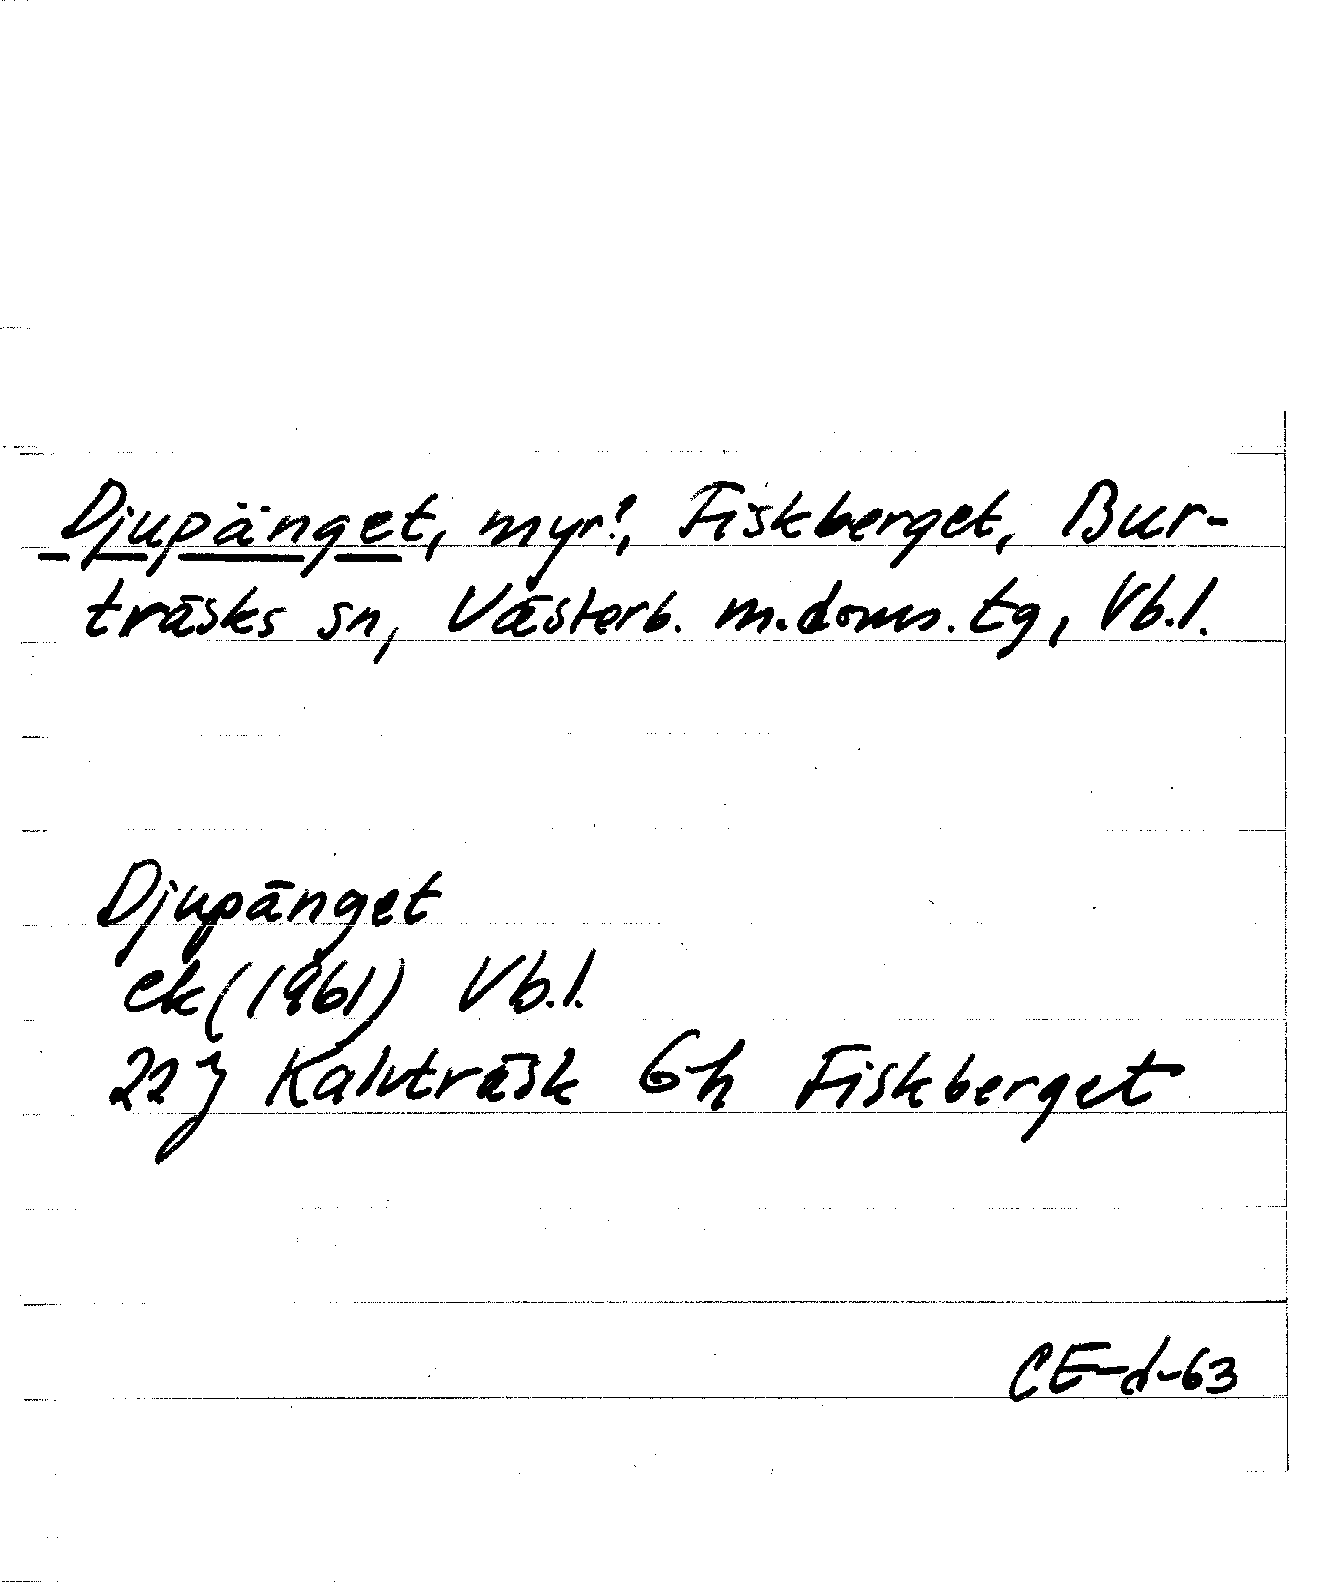 Djupänget, myr?, Fiskberget, Bur-
träsks sn, Västerb. m.doms.tg, Vb.l.
Djupänget
ek (1961) Vb.l.
22J Kalvträsk 6h Fiskberget
CE-d-63